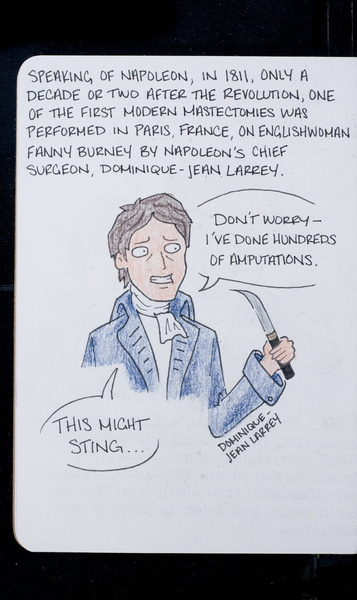 SPEAKING OF NAPOLEON, IN 1811, ONLY A
DECADE OR TWO AFTER THE REVOLUTION, ONE
OF THE FIRST MODERN MASTECTOMIES WAS
PERFORMED IN PARIS, FRANCE, ON ENGLISHWOMAN
FANNY BURNEY BY NAPOLEON'S CHIEF
SURGEON, DOMINIQUE-JEAN LARREY.
DON'T WORRY—
I'VE DONE HUNDREDS
OF AMPUTATIONS.
THIS MIGHT
STING...
DOMINIQUE-
JEAN LARREY